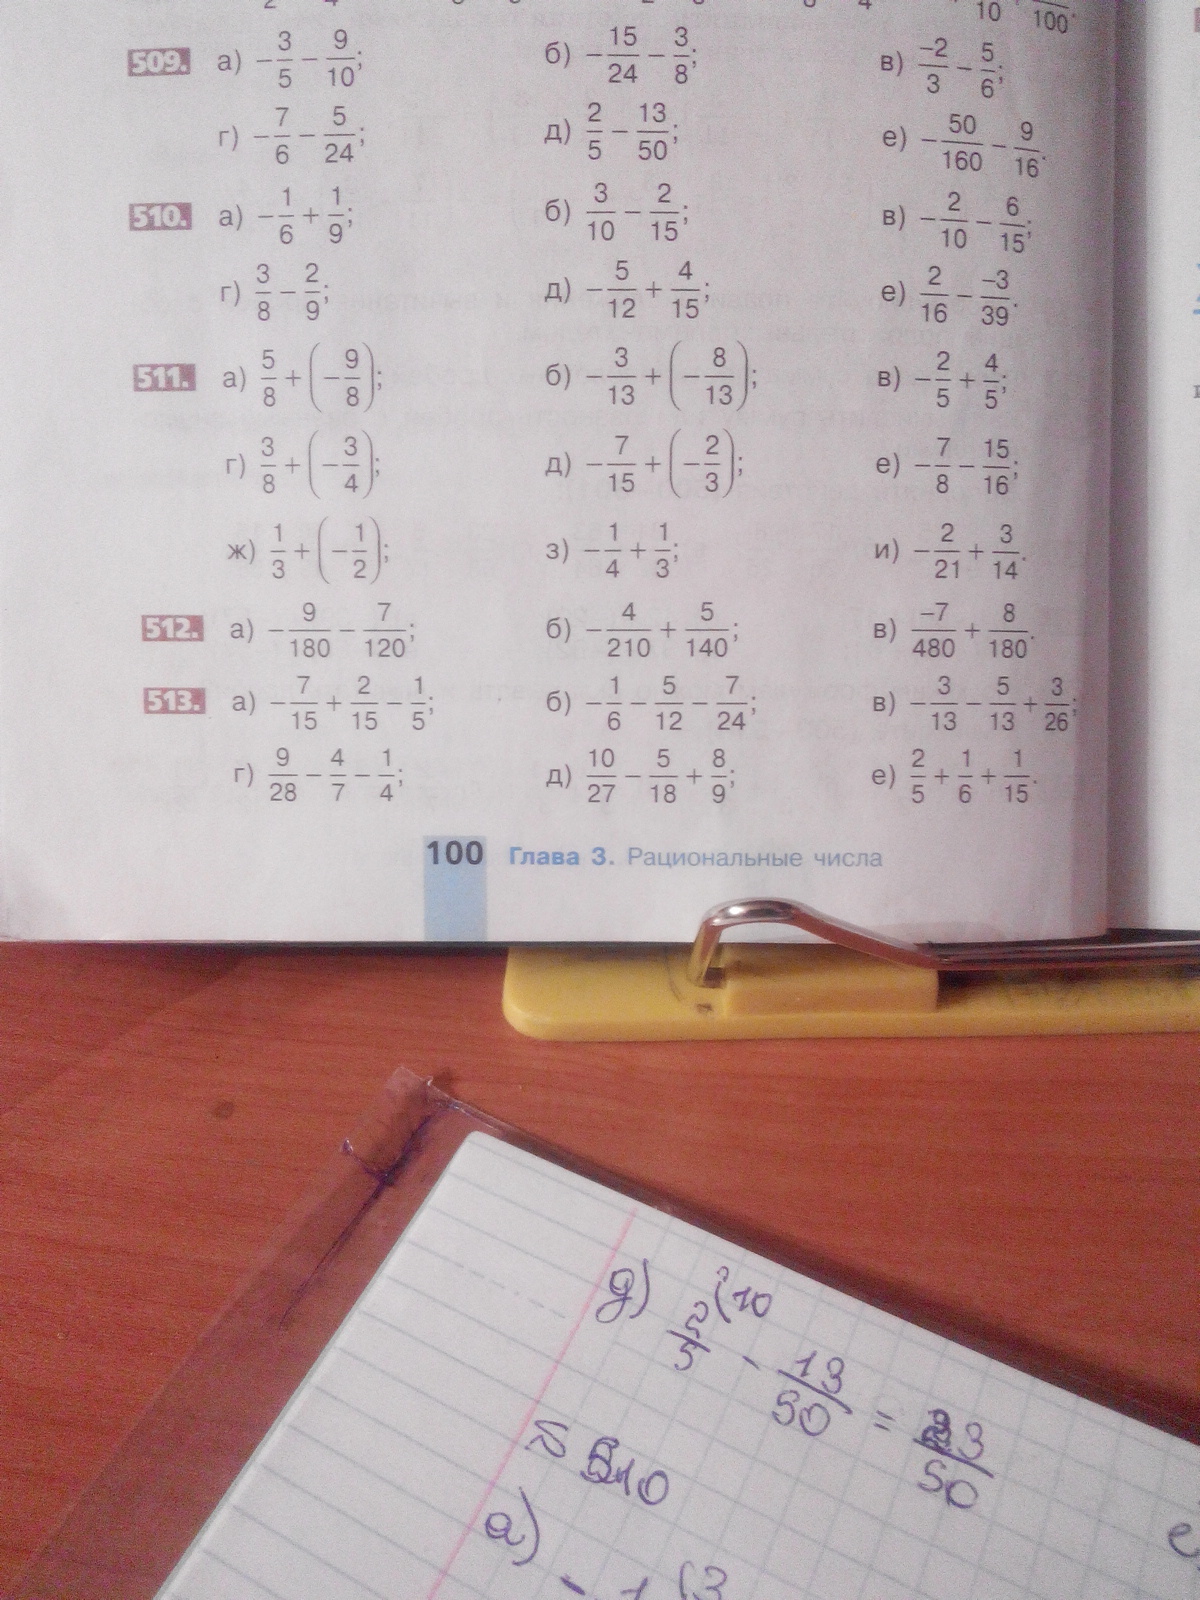 2 4 10 100.
509. а) −3/5 − 9/10; б) −15/24 − 3/8; в) −2/3 − 5/6;
г) −7/6 − 5/24; д) 2/5 − 13/50; е) −50/160 − 9/16.
510. а) −1/6 + 1/9; б) 3/10 − 2/15; в) −2/10 − 6/15;
г) 3/8 − 2/9; д) −5/12 + 4/15; е) 2/16 − −3/39.
511. а) 5/8 + (−9/8); б) −3/13 + (−8/13); в) −2/5 + 4/5;
г) 3/8 + (−3/4); д) −7/15 + (−2/3); е) −7/8 − 15/16;
ж) 1/3 + (−1/2); з) −1/4 + 1/3; и) −2/21 + 3/14.
512. а) −9/180 − 7/120; б) −4/210 + 5/140; в) −7/480 + 8/180.
513. а) −7/15 + 2/15 − 1/5; б) −1/6 − 5/12 − 7/24; в) −3/13 − 5/13 + 3/26;
г) 9/28 − 4/7 − 1/4; д) 10/27 − 5/18 + 8/9; е) 2/5 + 1/6 + 1/15.
100 Глава 3. Рациональные числа
д) 2/5 (10 − 13/50 = /50
510
а) − 1 (3